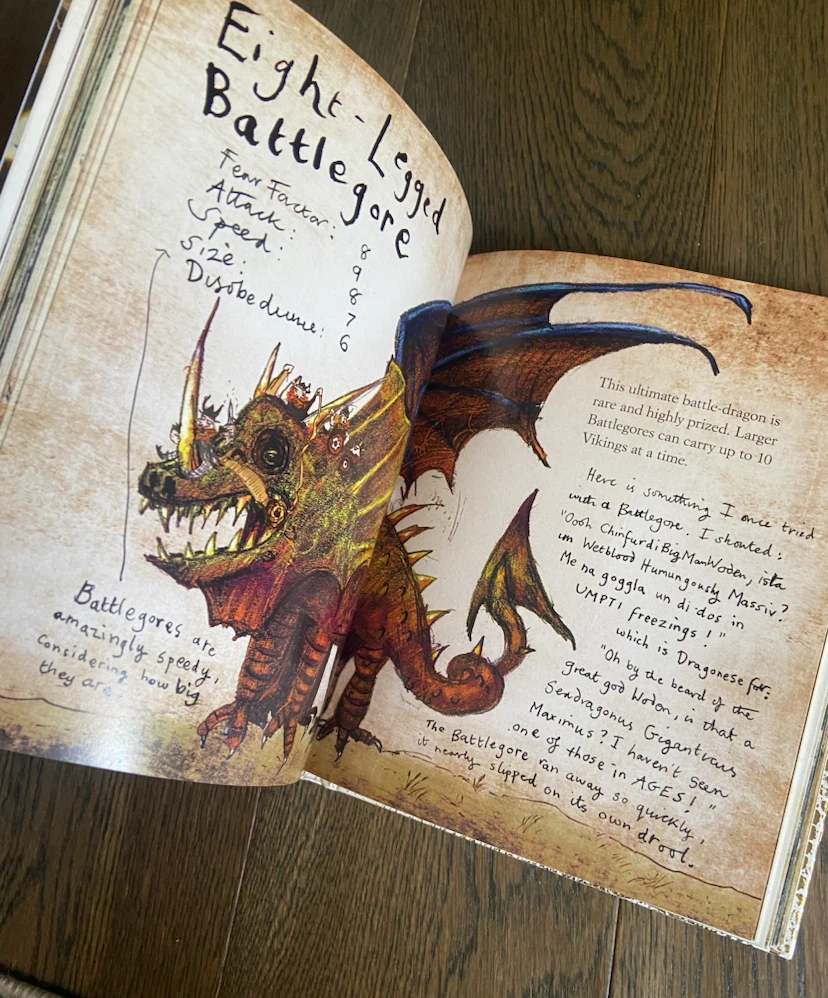 Eight-Legged
Battlegore
Fear Factor: 8
Attack: 9
Speed: 8
Size: 7
Disobedience: 6
Battlegores are
amazingly speedy,
considering how big
they are
This ultimate battle-dragon is
rare and highly prized. Larger
Battlegores can carry up to 10
Vikings at a time.
Here is something I once tried
with a Battlegore. I shouted:
"Oooh ChinfurdiBigManWoden, ista
un Wetblood Humungously Massiv?
Me na goggla un di dos in
UMPTI freezings!"
which is Dragonese for:
"Oh by the beard of the
great god Woden, is that a
Seadragonus Giganticus
Maximus? I haven't seen
one of those in AGES!"
The Battlegore ran away so quickly,
it nearly slipped on its own drool.